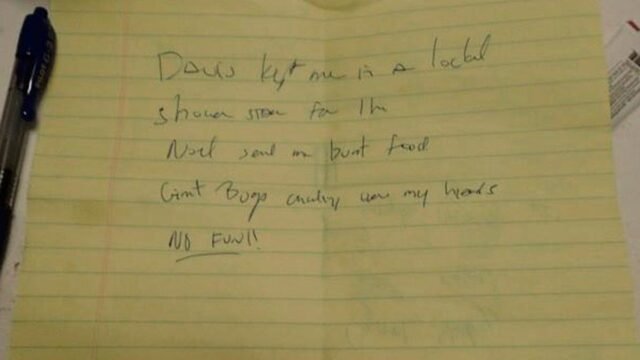 Davis kept me in a locked
shower stall for 1 hr
Noel sent me burnt food
Giant Bugs crawling over my hands
NO FUN!!